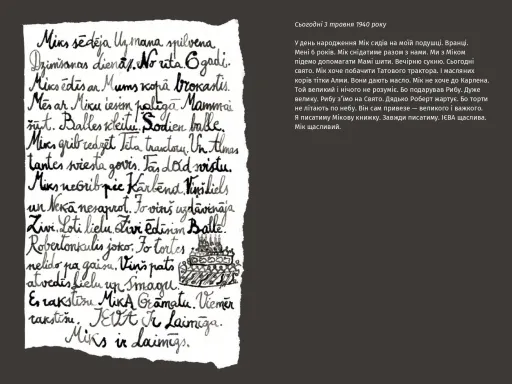 Miks sēdēja Uz mana spilvena
Dzimšanas dienā. No rīta 6 gadi.
Miks ēdīs ar Mums kopā brokastis.
Mēs ar Miku iesim palīgā Mammai
šūt. Balles kleitu. Šodien balle.
Miks grib redzēt Tēta traktoru. Un Almas
tantes sviesta govis. Tās dod sviestu.
Miks negrib pie Kārbend. Viņš liels
un Nekā nesaprot. To viņš uzdāvināja
Zivi. Ļoti lielu. Zivi ēdīsim Ballē!
Robertonkulis joko. Jo tortes
nelido pa gaisu. Viņš pats
atvedīs lielu un smagu.
Es rakstīšu MikA Grāmatu. Vienmēr
rakstīšu. IEVA Ir Laimīga.
Miks ir Laimīgs.
Сьогодні 3 травня 1940 року
У день народження Мік сидів на моїй подушці. Вранці.
Мені 6 років. Мік снідатиме разом з нами. Ми з Міком
підемо допомагати Мамі шити. Вечірню сукню. Сьогодні
свято. Мік хоче побачити Татового трактора. І масляних
корів тітки Алми. Вони дають масло. Мік не хоче до Карлена.
Той великий і нічого не розуміє. Бо подарував Рибу. Дуже
велику. Рибу з’їмо на Свято. Дядько Роберт жартує. Бо торти
не літають по небу. Він сам привезе — великого і важкого.
Я писатиму Мікову книжку. Завжди писатиму. ІЄВА щаслива.
Мік щасливий.